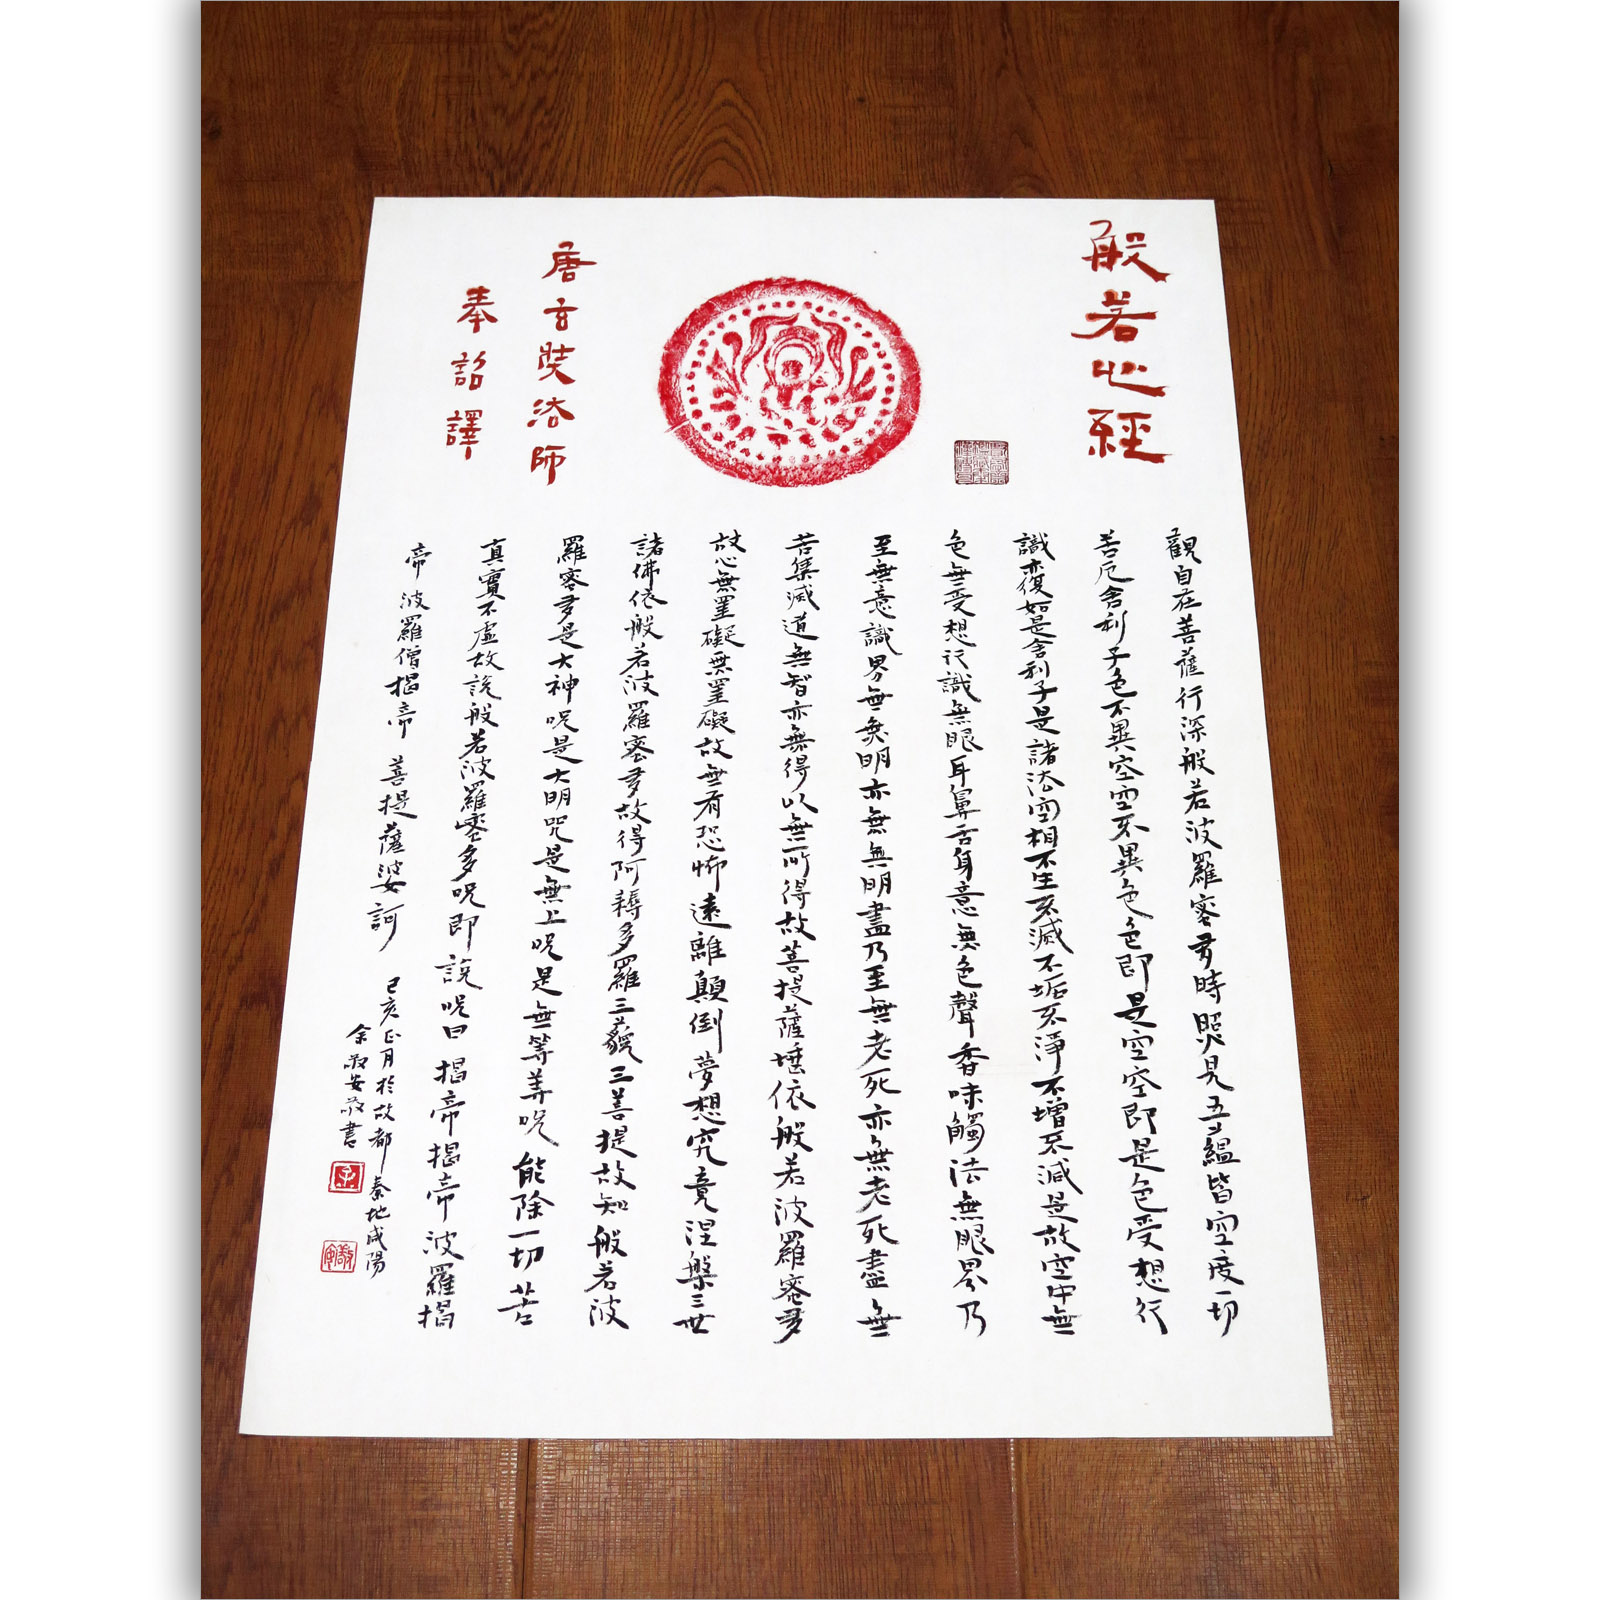 般若心經
唐玄奘法師
奉詔譯
觀自在菩薩行深般若波羅蜜多時照見五蘊皆空度一切
苦厄舍利子色不異空空不異色色即是空空即是色受想行
識復如是舍利子是諸法空相不生不滅不垢不淨不增不減是故空中無
色無受想行識無眼耳鼻舌身意無色聲香味觸法無眼界乃
至無意識界無無明亦無無明盡乃至無老死亦無老死盡無
苦集滅道無智亦無得以無所得故菩提薩埵依般若波羅蜜多
故心無罣礙無罣礙故無有恐怖遠離顛倒夢想究竟涅槃三世
諸佛依般若波羅蜜多故得阿耨多羅三藐三菩提故知般若波
羅蜜多是大神咒是大明咒是無上咒是無等等咒能除一切苦
真實不虛故說般若波羅蜜多咒即說咒曰揭帝揭帝波羅揭
帝 波羅僧揭帝 菩提薩婆訶
己亥正月於故都秦地咸陽
余敬安敬書